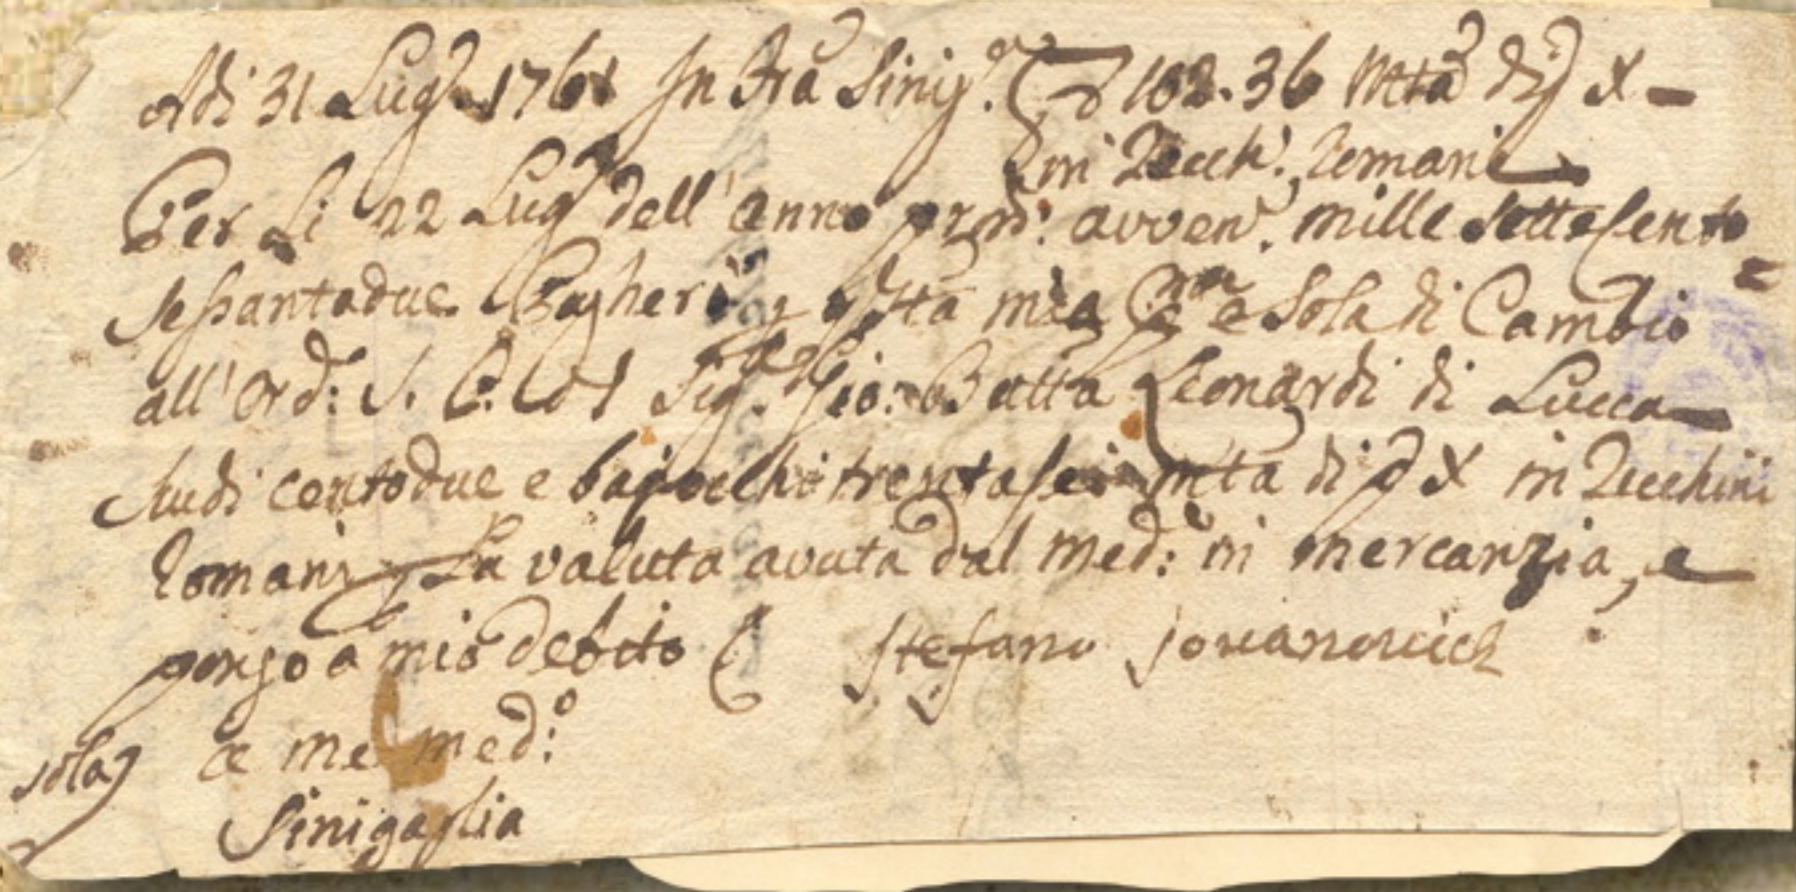 Adi 31 Lug.o 1761 In Fra Sinig.a 102.36 Mta di X
in Zecch.i Romani
Per li 22 Lug.o dell'anno pross: avven. mille settecento
sessantadue Pagherò q.sta mia P.ma e sola di Cambio
all'ord: S. P. del Sig.r Gio: Batta Leonardi di Lucca
scudi centodue e bajocchi trentasei mta di X in Zecchini
Romani La valuta avuta dal med: in mercanzia, e
pongo a mio debito Stefano Jovanovich
sola a me med:o
Sinigaglia